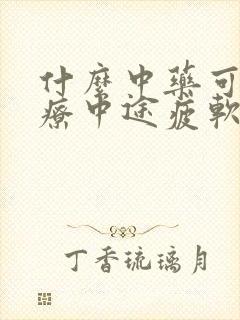 什麽中藥可
療中途疲軟
丁香琉璃月